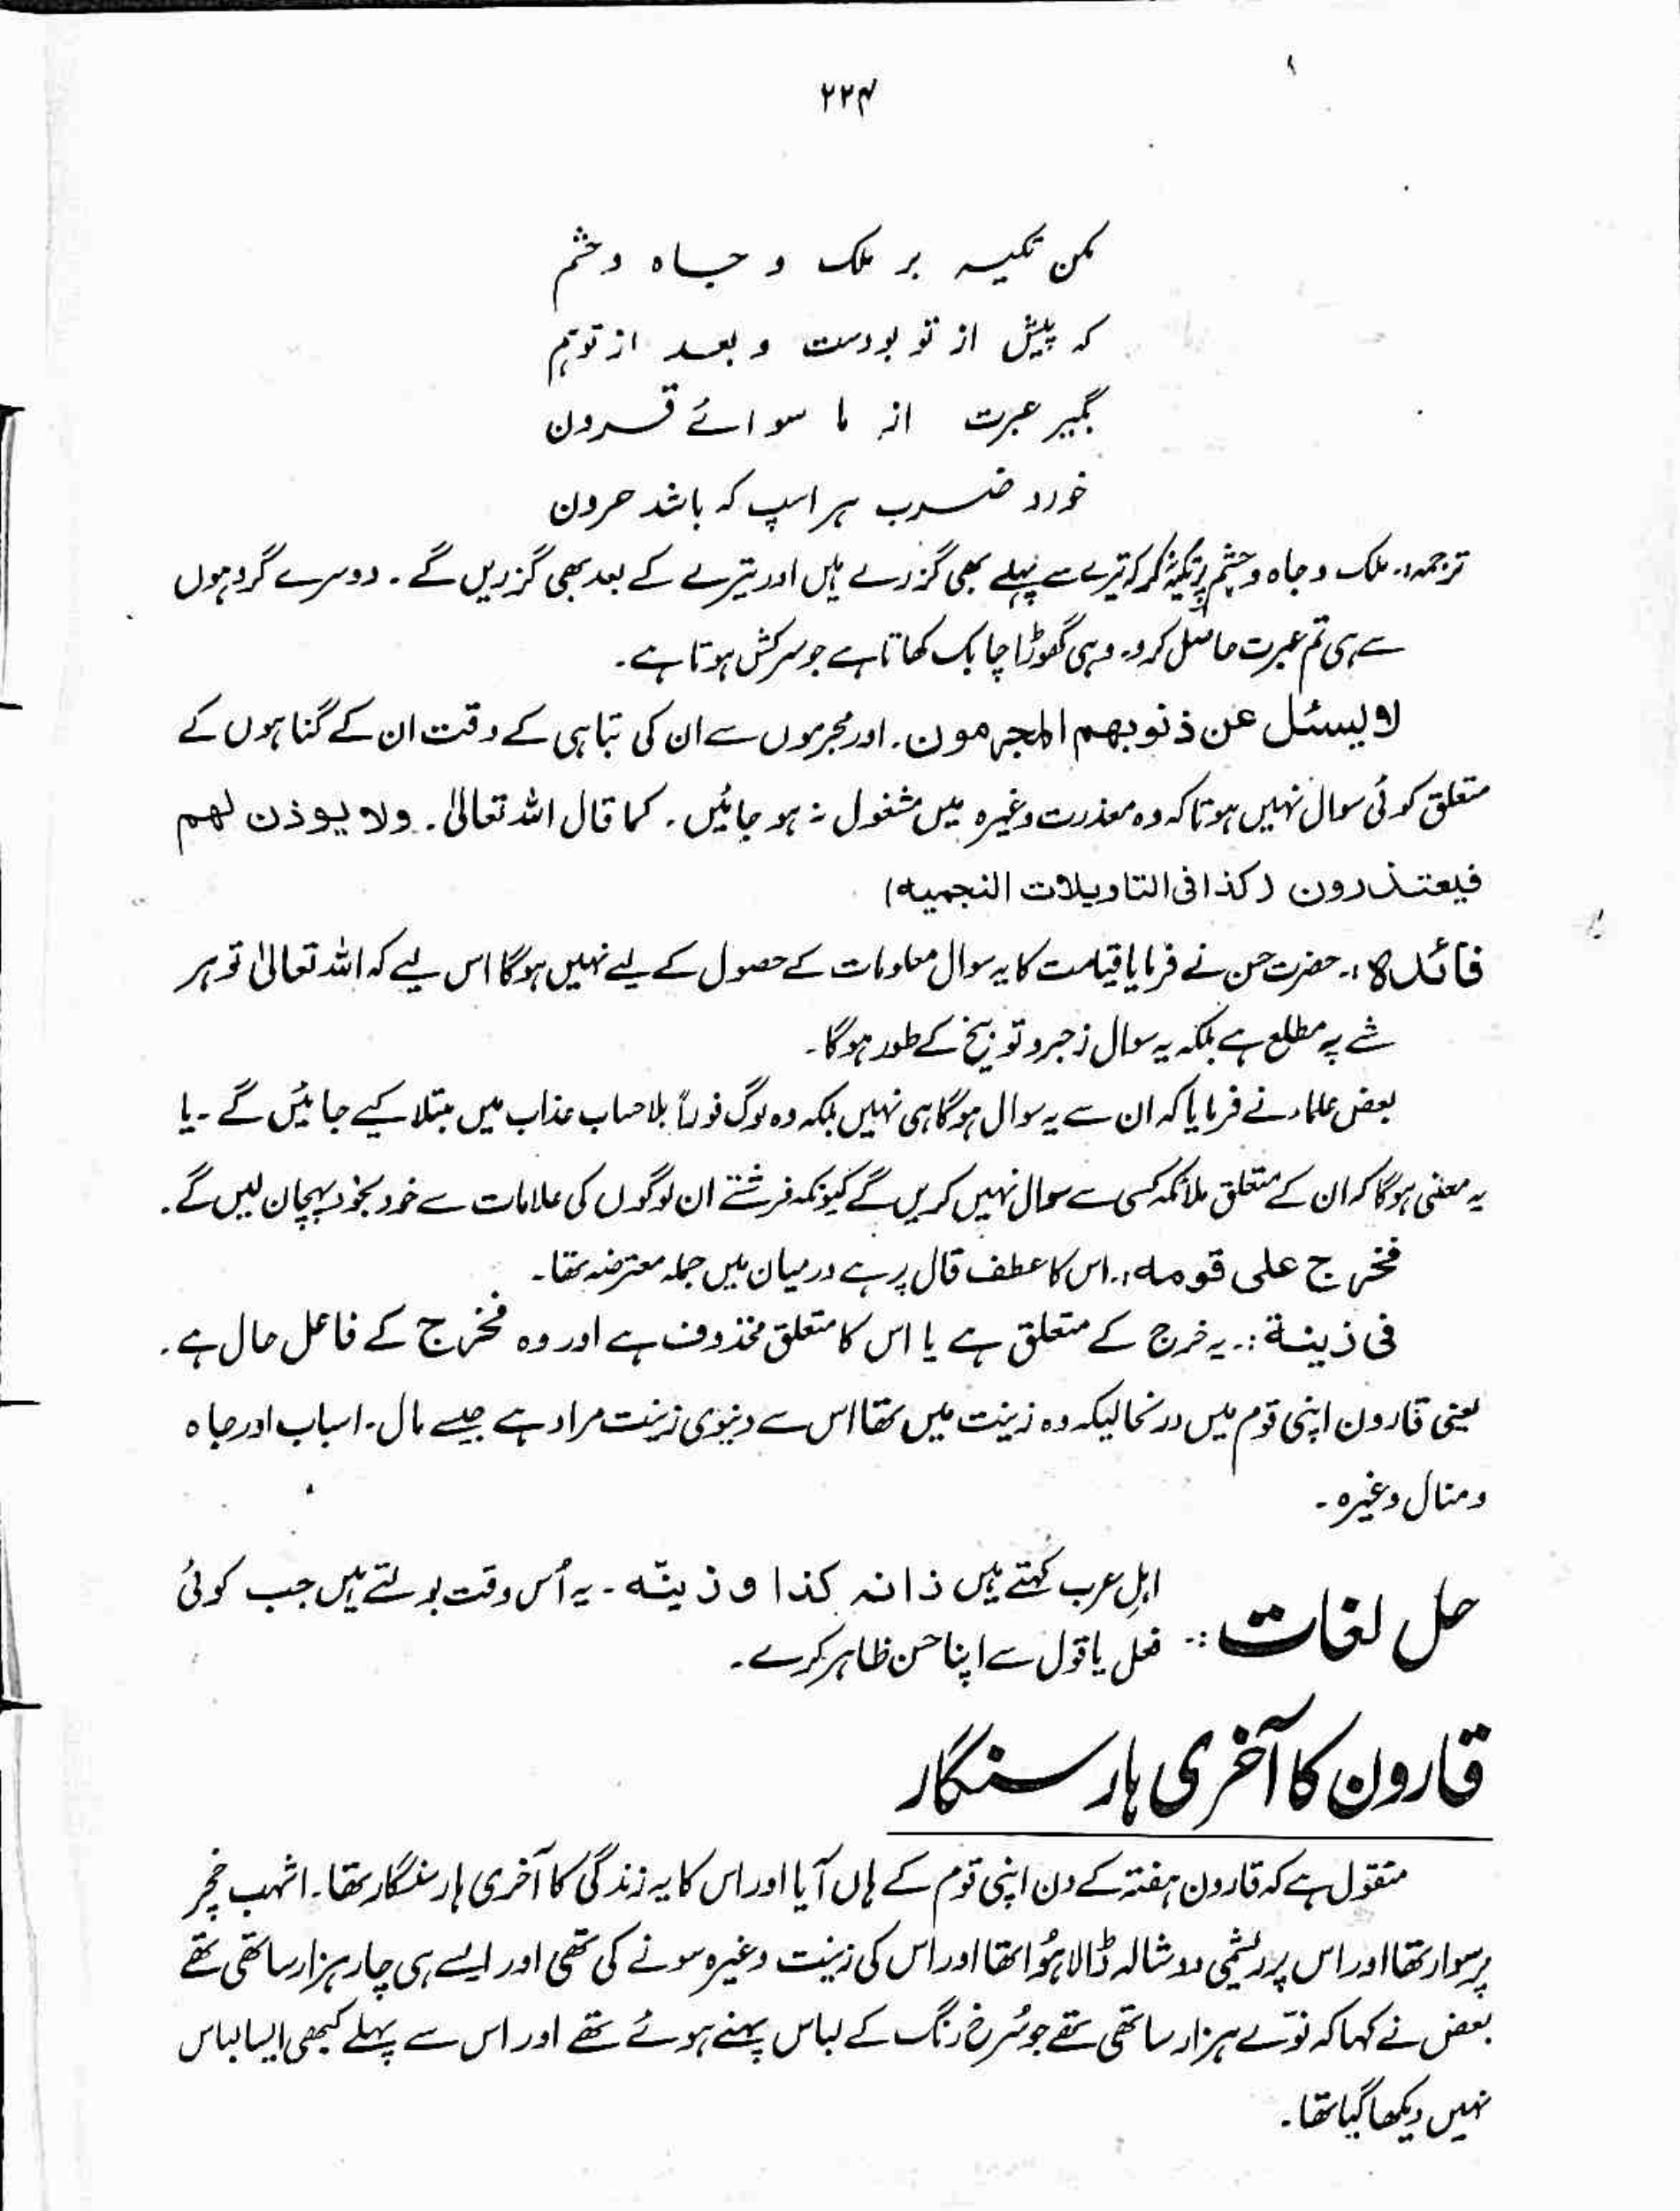 ۲۲۴
مکن تکیہ بر ملک و جاہ و حشم
کہ پیش از تو بودست و بعد از تو ہم
بگیر عبرت از ما سوائے قرون
خورد ضرب ہر اسپ کہ باشد حرون
ترجمہ:۔ ملک و جاہ و حشم پر تکیہ نہ کر کہ تیرے سے پہلے بھی گزرے ہیں اور تیرے کے بعد بھی گزریں گے ۔ دوسرے گروہوں
سے ہی تم عبرت حاصل کرو۔ وہی گھوڑا چابک کھاتا ہے جو سرکش ہوتا ہے۔
لا یسئل عن ذنوبھم المجرمون ۔ اور مجرموں سے ان کی تباہی کے وقت ان کے گناہوں کے
متعلق کوئی سوال نہیں ہوتا کہ وہ معذرت وغیرہ میں مشغول نہ ہو جائیں ۔ کما قال اللہ تعالیٰ ۔ ولا یوذن لھم
فیعتذرون (کذا فی التاویلات النجمیہ)
فائدہ :۔ حضرت حسن نے فرمایا قیامت کا یہ سوال معلومات کے حصول کے لیے نہیں ہوگا اس لیے کہ اللہ تعالیٰ تو ہر
شے پہ مطلع ہے بلکہ یہ سوال زجر و توبیخ کے طور ہوگا ۔
بعض علماء نے فرمایا کہ ان سے یہ سوال ہوگا ہی نہیں بلکہ وہ لوگ فوراً بلا حساب عذاب میں مبتلا کیے جائیں گے ۔ یا
یہ معنی ہوگا کہ ان کے متعلق ملائکہ کسی سے سوال نہیں کریں گے کیونکہ فرشتے ان لوگوں کی علامات سے خود بخود پہچان لیں گے ۔
فخرج علی قومہ :۔ اس کا عطف قال پر ہے درمیان میں جملہ معترضہ تھا ۔
فی زینة :۔ یہ خرج کے متعلق ہے یا اس کا متعلق محذوف ہے اور وہ فخرج کے فاعل حال ہے ۔
یعنی قارون اپنی قوم میں درنحالیکہ وہ زینت میں تھا اس سے دنیوی زینت مراد ہے جیسے مال ۔ اسباب اور جاہ
و منال وغیرہ ۔
حل لغات :۔ اہلِ عرب کہتے ہیں زانہ کذا و زینّہ ۔ یہ اُس وقت بولتے ہیں جب کوئی
فعل یا قول سے اپنا حسن ظاہر کرے ۔
قارون کا آخری ہار سنگار
منقول ہے کہ قارون ہفتہ کے دن اپنی قوم کے ہاں آیا اور اس کا یہ زندگی کا آخری ہار سنگار تھا ۔ اشہب خچر
پر سوار تھا اور اس پر ریشمی دوشالہ ڈالا ہُوا تھا اور اس کی زینت وغیرہ سونے کی تھی اور ایسے ہی چار ہزار ساتھی تھے
بعض نے کہا کہ نوّے ہزار ساتھی تھے جو سُرخ رنگ کے لباس پہنے ہوئے تھے اور اس سے پہلے کبھی ایسا لباس
نہیں دیکھا گیا تھا ۔